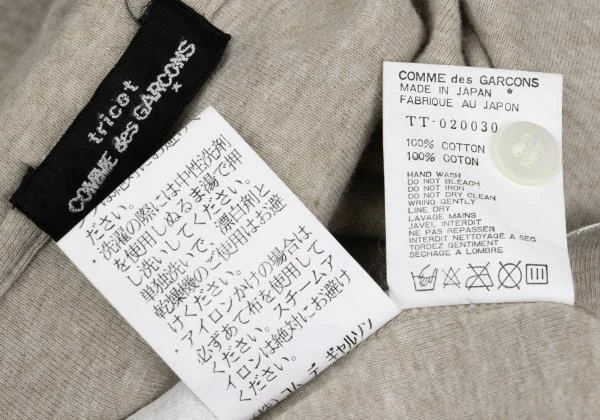 tricot
COMME des GARÇONS
*
ださい。
・洗濯の際には中性洗剤
を使用しぬるま湯で押
し洗いしてください。
単独洗いで、漂白剤と
乾燥機のご使用はお避
けください。
・アイロンかけの場合は
必ずあて布を使用して
ください。スチームア
イロンは絶対にお避け
ください。
㈱コム デ ギャルソン
COMME des GARÇONS
*
MADE IN JAPAN
FABRIQUE AU JAPON
TT-020030
100% COTTON
100% COTON
HAND WASH
DO NOT BLEACH
DO NOT IRON
DO NOT DRY CLEAN
WRING GENTLY
LINE DRY
LAVAGE MAINS
JAVEL INTERDIT
NE PAS REPASSER
INTERDIT NETTOYAGE A SEC
TORDEZ GENTIMENT
SECHAGE A L'OMBRE